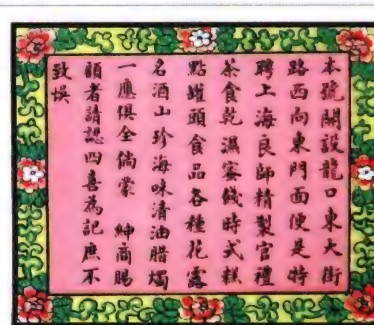 本號開設龍口東大街
路西向東門面便是特
聘上海良師精製官禮
茶食乾濕蜜餞時式糕
點罐頭食品各種花露
名酒山珍海味清油腊燭
一應俱全倘蒙 紳商賜
顧者請認四喜為記庶不
致悞